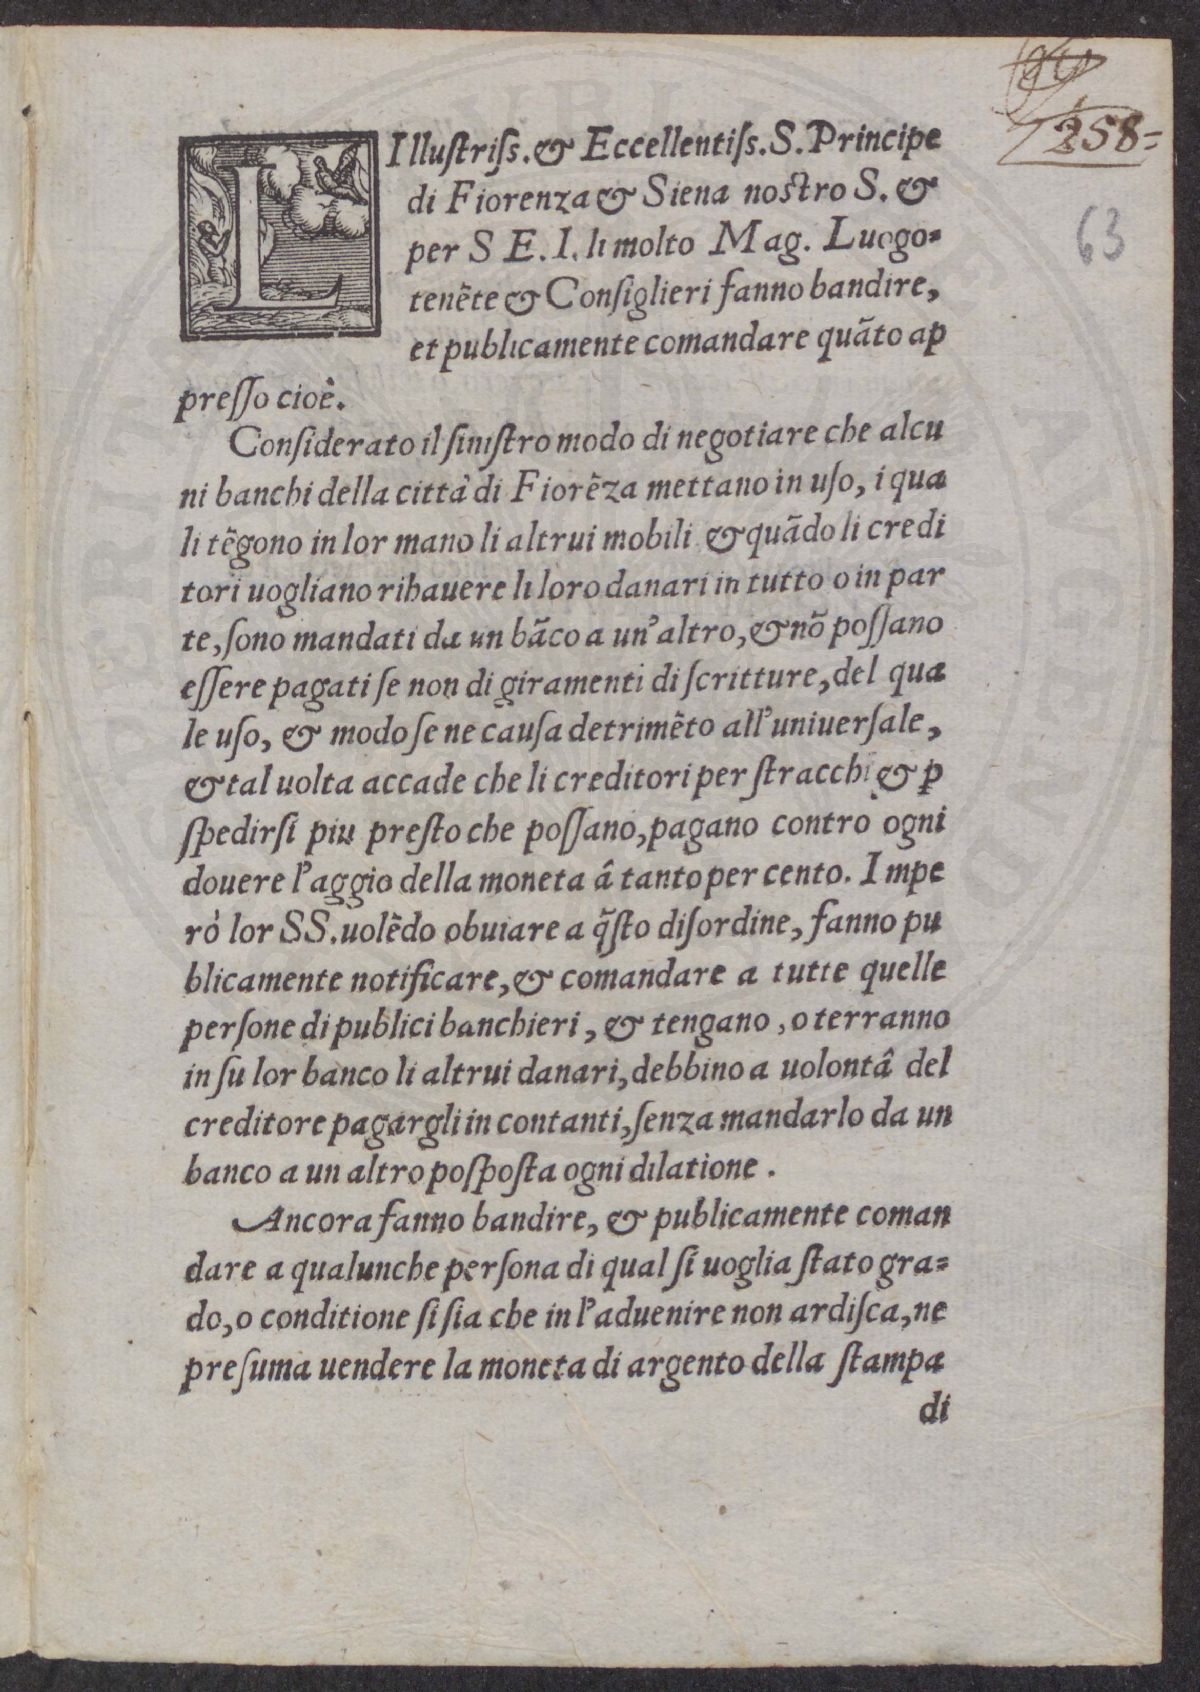 258-
63
L Illustriſs. & Eccellentiſs. S. Principe
di Fiorenza & Siena nostro S. &
per S E. I. li molto Mag. Luogo=
tenēte & Conſiglieri fanno bandire,
et publicamente comandare quāto ap
preſſo cioè.
Conſiderato il ſiniſtro modo di negotiare che alcu
ni banchi della cittá di Fiorēza mettano in uſo, i qua
li tēgono in lor mano li altrui mobili & quādo li credi
tori uogliano rihauere li loro danari in tutto o in par
te, ſono mandati da un bāco a un'altro, & nō poſſano
eſſere pagati ſe non di giramenti di ſcritture, del qua
le uſo, & modo ſe ne cauſa detrimēto all'uniuerſale,
& tal uolta accade che li creditori per ſtracchi & ꝑ
ſpedirſi piu preſto che poſſano, pagano contro ogni
douere l'aggio della moneta â tanto per cento. Impe
rò lor SS. uolēdo obuiare a q̄ſto diſordine, fanno pu
blicamente notificare, & comandare a tutte quelle
perſone di publici banchieri, & tengano, o terranno
in ſu lor banco li altrui danari, debbino a uolontâ del
creditore pagargli in contanti, ſenza mandarlo da un
banco a un altro poſpoſta ogni dilatione.
Ancora fanno bandire, & publicamente coman
dare a qualunche perſona di qual ſi uoglia ſtato gra=
do, o conditione ſi ſia che in l'aduenire non ardiſca, ne
preſuma uendere la moneta di argento della ſtampa
di